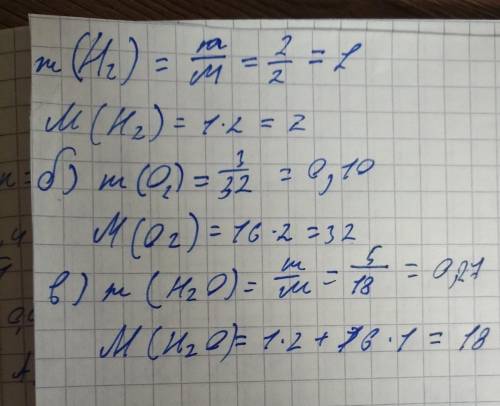 n(H₂) = m/M = 2/2 = 1
M(H₂) = 1·2 = 2
б) n(O₂) = 3/32 = 0,10
M(O₂) = 16·2 = 32
в) n(H₂O) = m/M = 5/18 = 0,27
M(H₂O) = 1·2 + 16·1 = 18